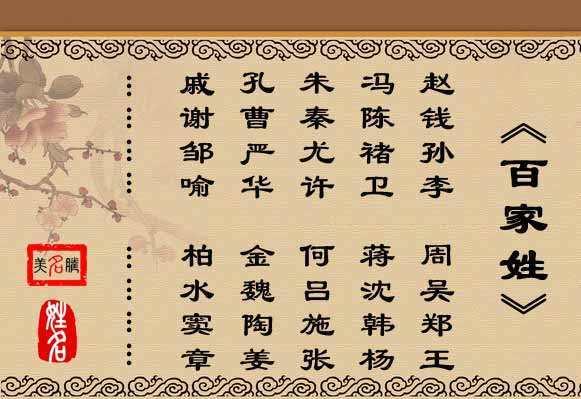 《百家姓》
赵钱孙李 周吴郑王
冯陈褚卫 蒋沈韩杨
朱秦尤许 何吕施张
孔曹严华 金魏陶姜
戚谢邹喻 柏水窦章
…… ……
美名腾
姓名